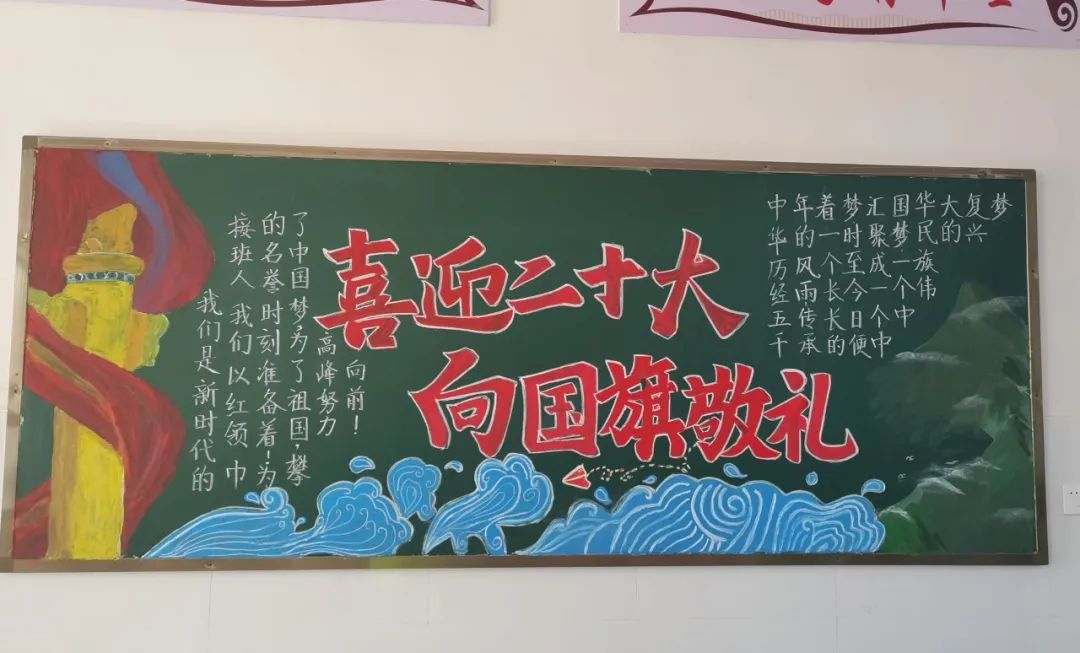 喜迎二十大
向国旗敬礼
我们是新时代的
接班人 我们以红领巾
的名誉时刻准备着!为
了中国梦,为了祖国,攀
高峰努力
向前!
中华历经五千
年的风雨传承
着一个长长的
梦时至今日便
汇聚成一个中
国梦一个中
华民族伟
大的
复兴
梦